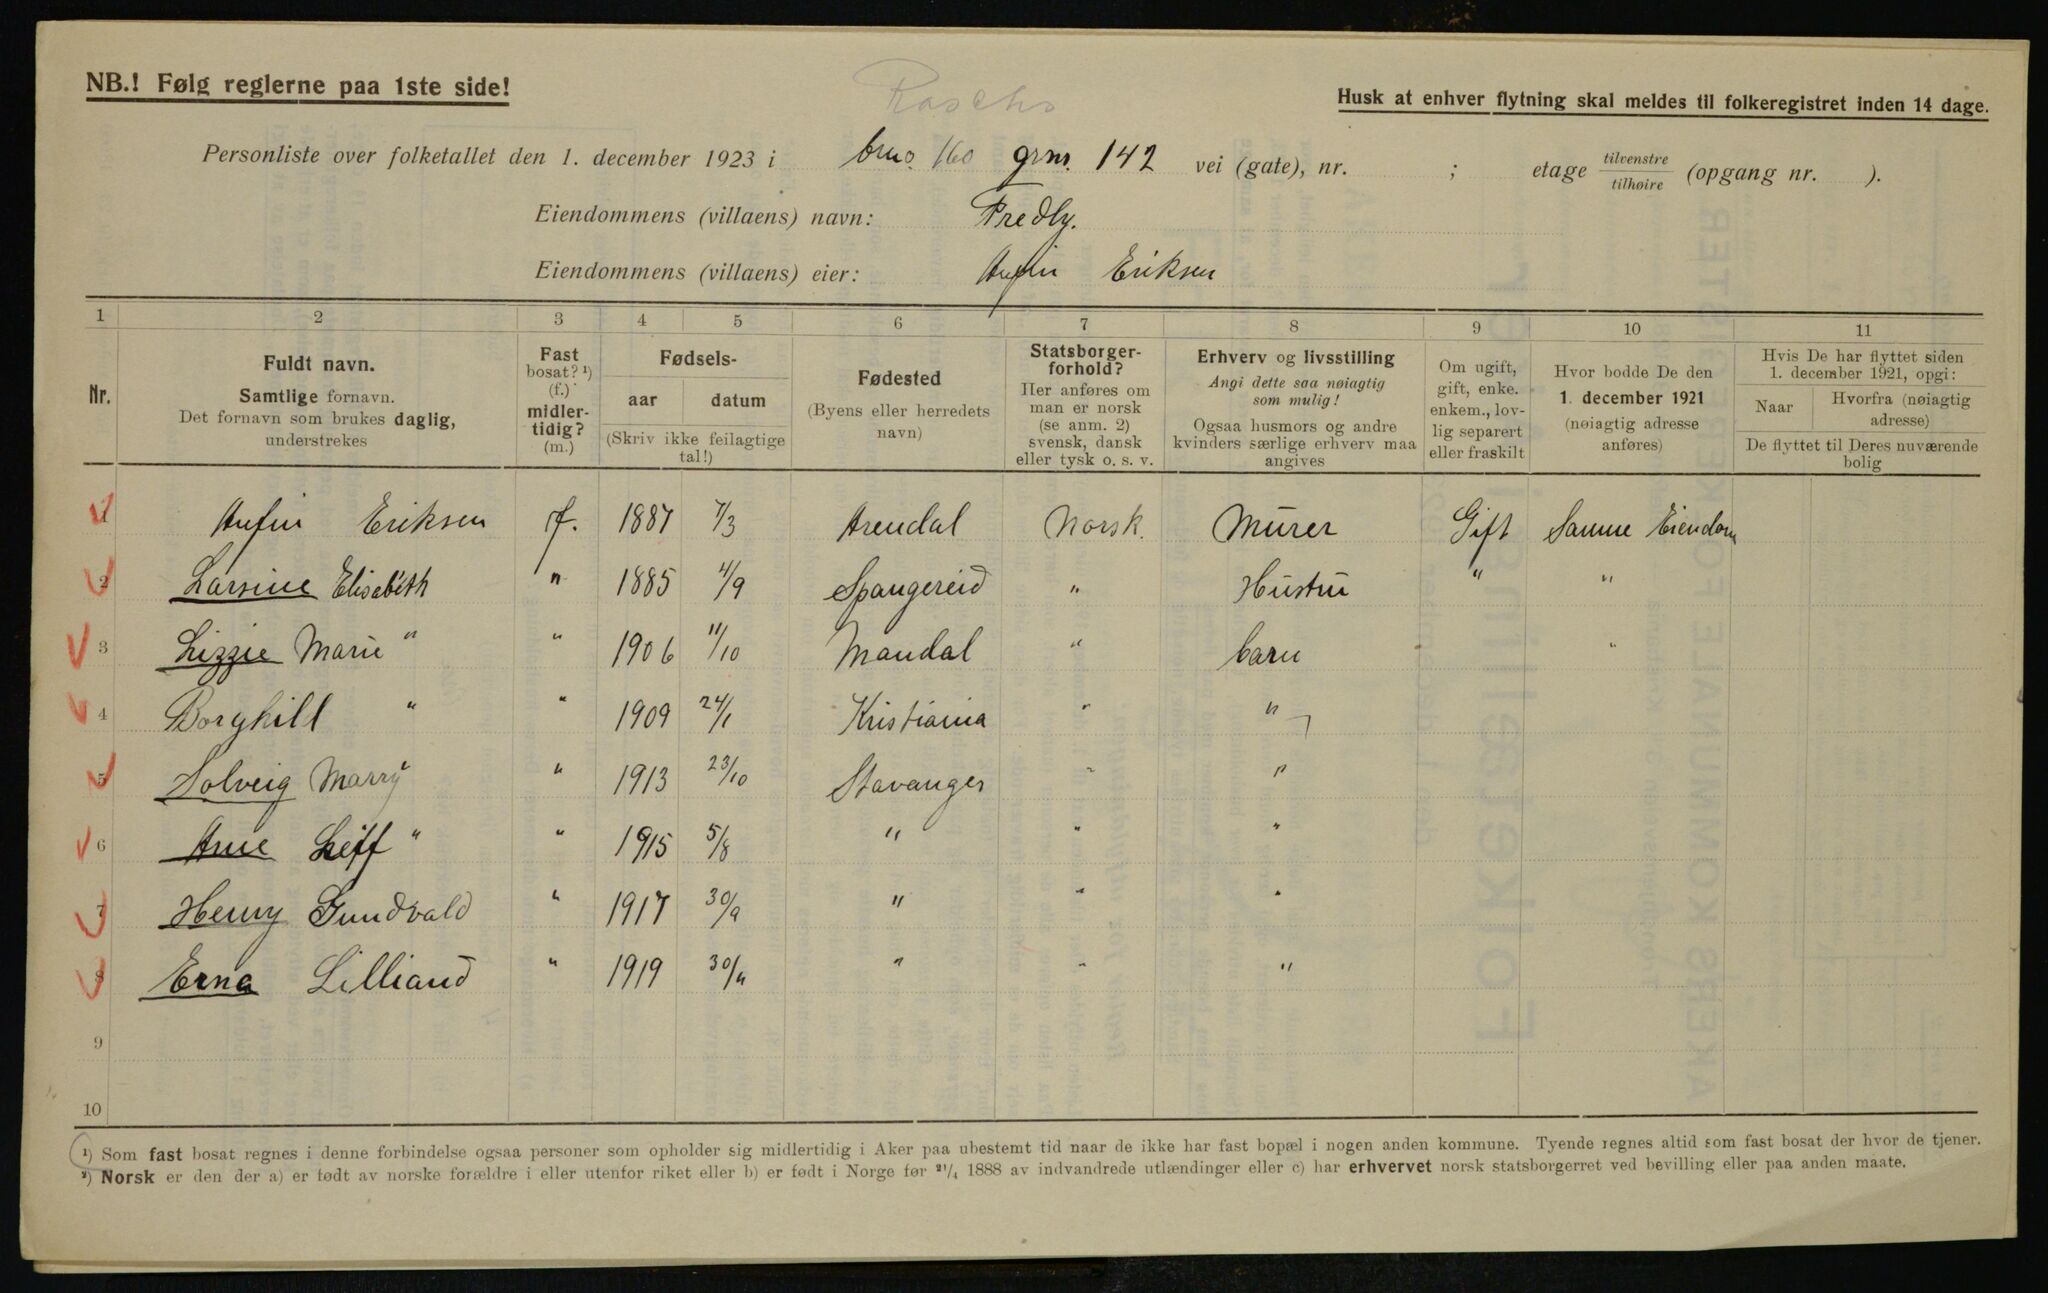 NB.! Følg reglerne paa 1ste side!
Raschs
Husk at enhver flytning skal meldes til folkeregistret inden 14 dage.
Personliste over folketallet den 1. december 1923 i bruno 160 grnr. 142 vei (gate), nr. ; etage tilvenstre/tilhøire (opgang nr. ).
Eiendommens (villaens) navn: Fredly.
Eiendommens (villaens) eier: Anfin Eriksen
1 2 3 4 5 6 7 8 9 10 11
Nr.
Fuldt navn.
Samtlige fornavn.
Det fornavn som brukes daglig,
understrekes
Fast
bosat? ¹)
(f.)
midler-
tidig?
(m.)
Fødsels-
aar datum
(Skriv ikke feilagtige
tal!)
Fødested
(Byens eller herredets
navn)
Statsborger-
forhold?
Her anføres om
man er norsk
(se anm. 2)
svensk, dansk
eller tysk o. s. v.
Erhverv og livsstilling
Angi dette saa nøiagtig
som mulig!
Ogsaa husmors og andre
kvinders særlige erhverv maa
angives
Om ugift,
gift, enke.
enkem., lov-
lig separert
eller fraskilt
Hvor bodde De den
1. december 1921
(nøiagtig adresse
anføres)
Hvis De har flyttet siden
1. december 1921, opgi:
Naar Hvorfra (nøiagtig
adresse)
De flyttet til Deres nuværende
bolig
1 Anfin Eriksen f. 1887 7/3 Arendal Norsk. Murer Gift Samme Eiendom
2 Larsine Elisabeth " 1885 4/9 Spangereid " Hustru " "
3 Lizzie Marie " " 1906 11/10 Mandal " barn "
4 Borghill " " 1909 24/1 Kristiania " "
5 Solveig Marry " " 1913 23/10 Stavanger " "
6 Arne Leiff " " 1915 5/8 " " "
7 Henry Gundvald " 1917 30/9 " " "
8 Erna Lilliand " 1919 30/11 " " "
9
10
¹) Som fast bosat regnes i denne forbindelse ogsaa personer som opholder sig midlertidig i Aker paa ubestemt tid naar de ikke har fast bopæl i nogen anden kommune. Tyende regnes altid som fast bosat der hvor de tjener.
²) Norsk er den der a) er født av norske forældre i eller utenfor riket eller b) er født i Norge før ²¹/₄ 1888 av indvandrede utlændinger eller c) har erhvervet norsk statsborgerret ved bevilling eller paa anden maate.